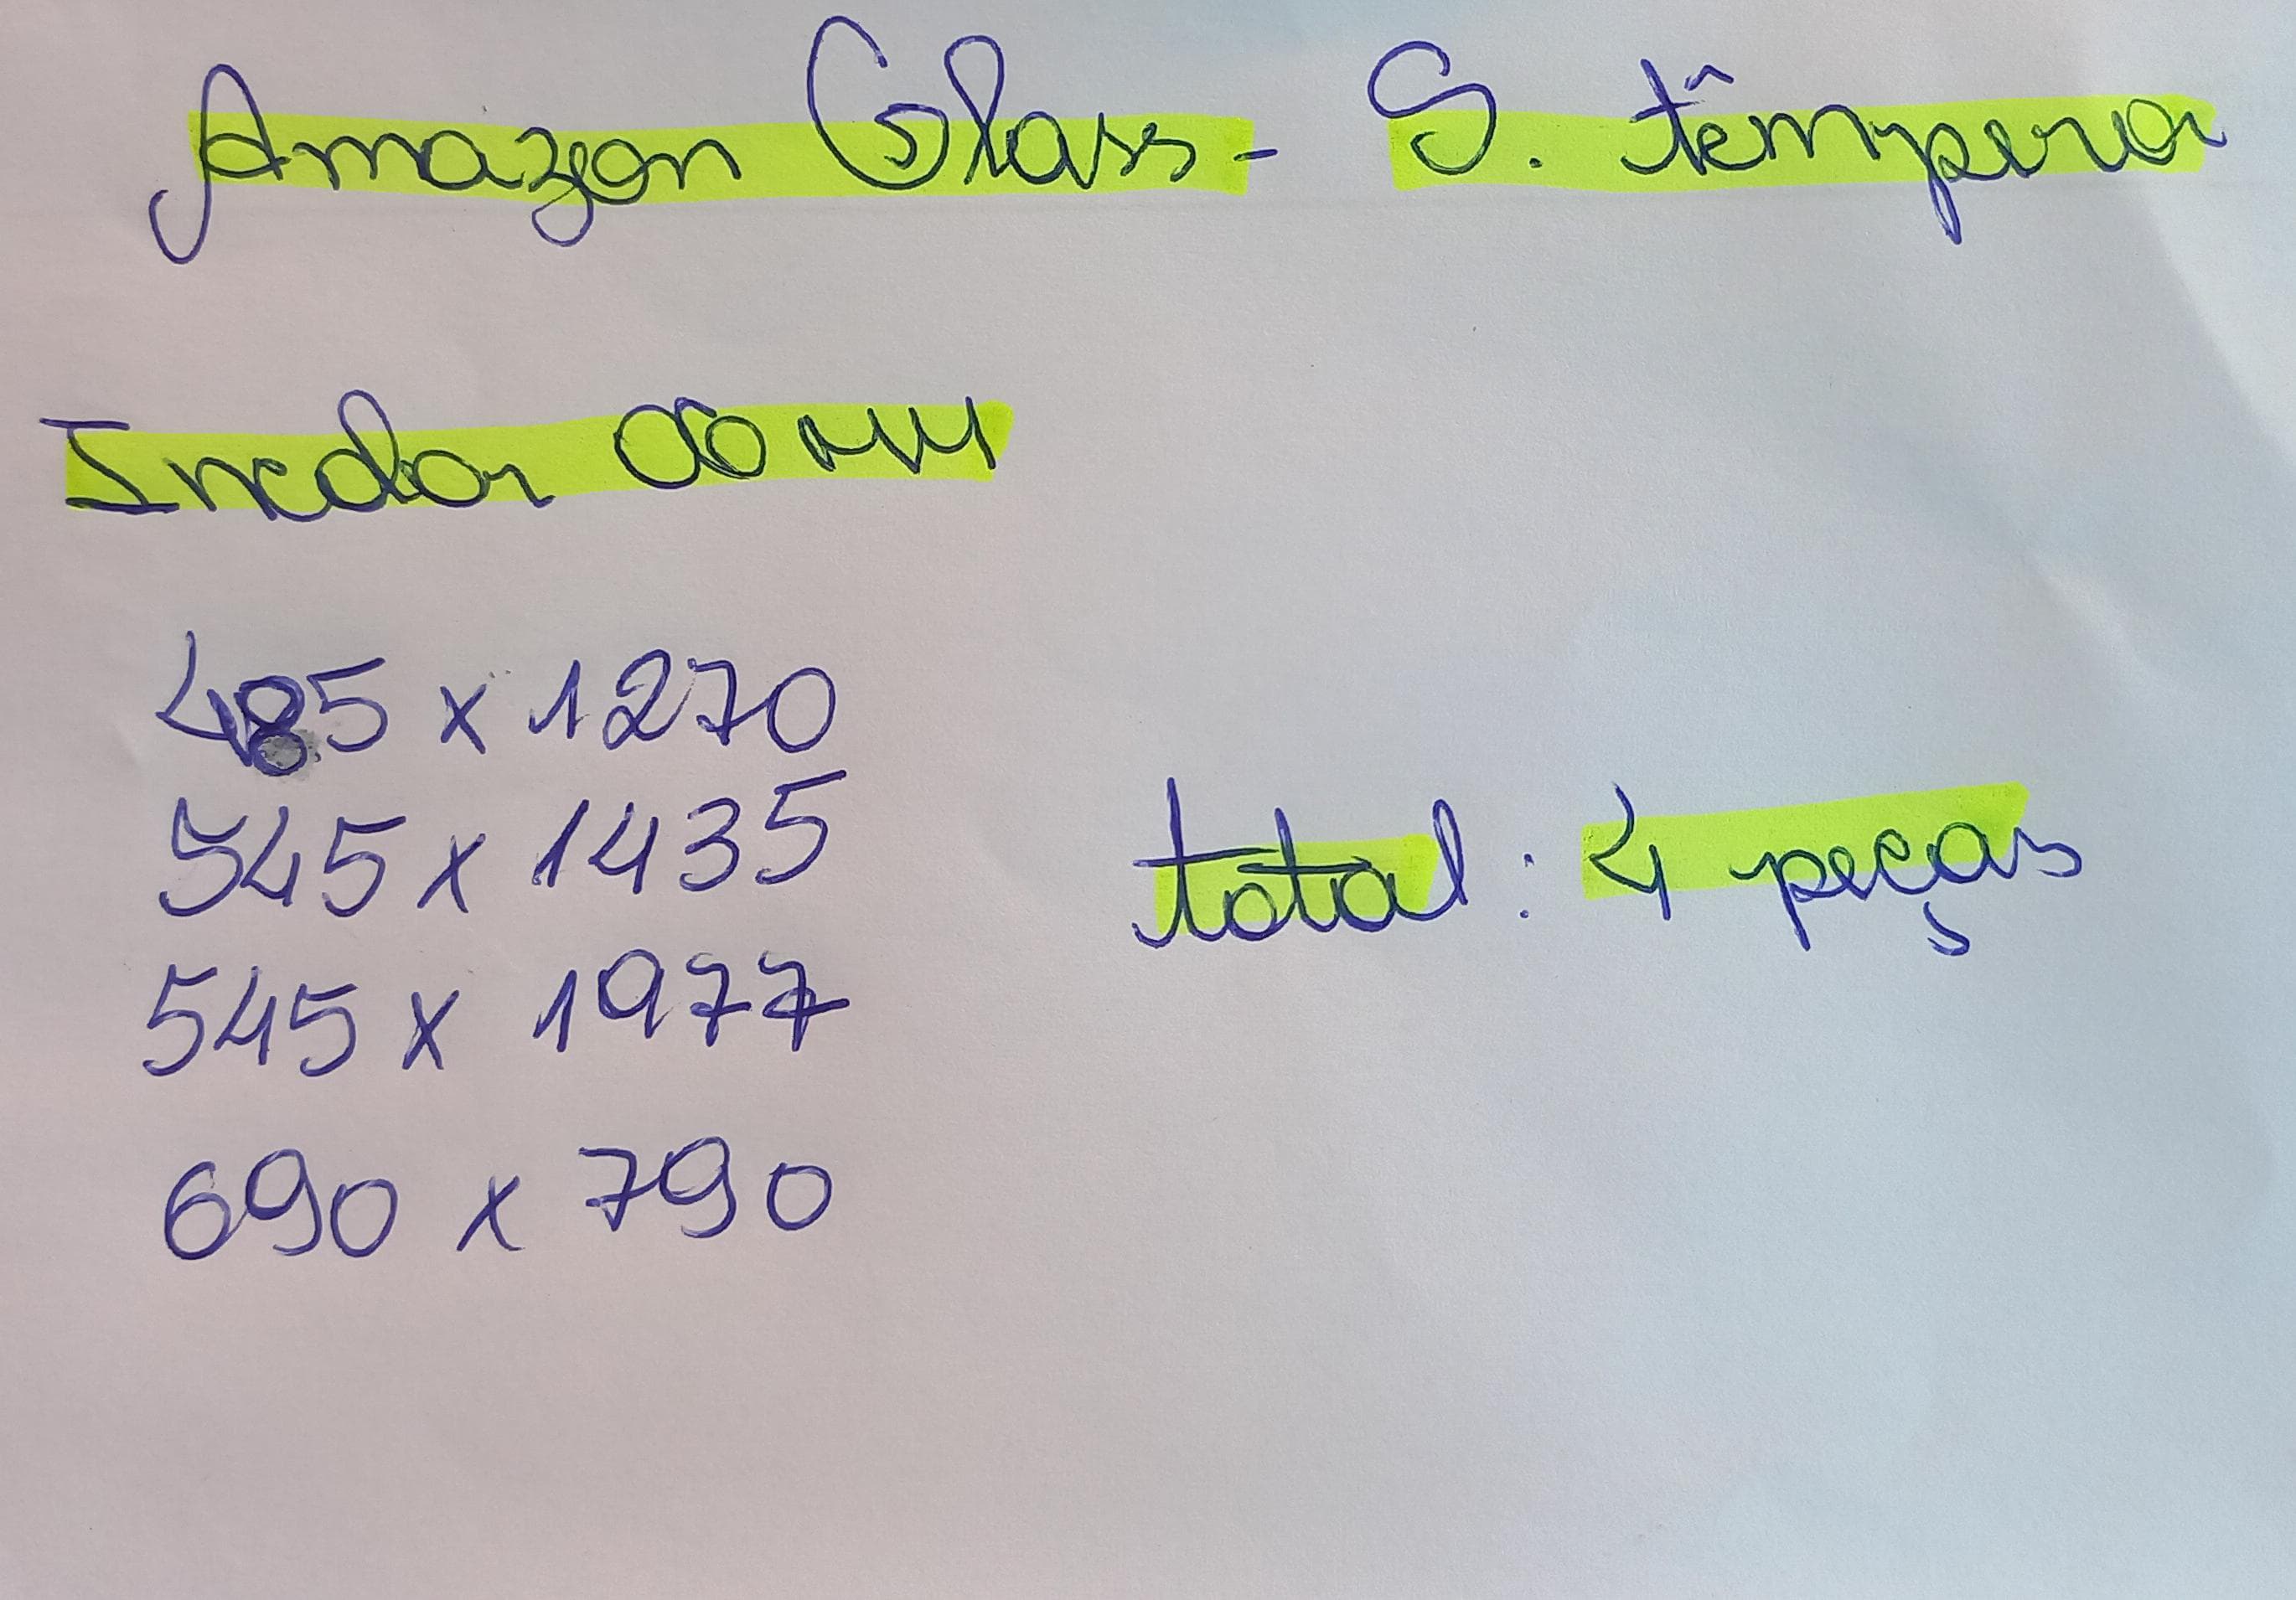 Amazon Glass - S. têmpera
Incolor 06 MM
485 x 1270
545 x 1435
total: 4 peças
545 x 1977
690 x 790